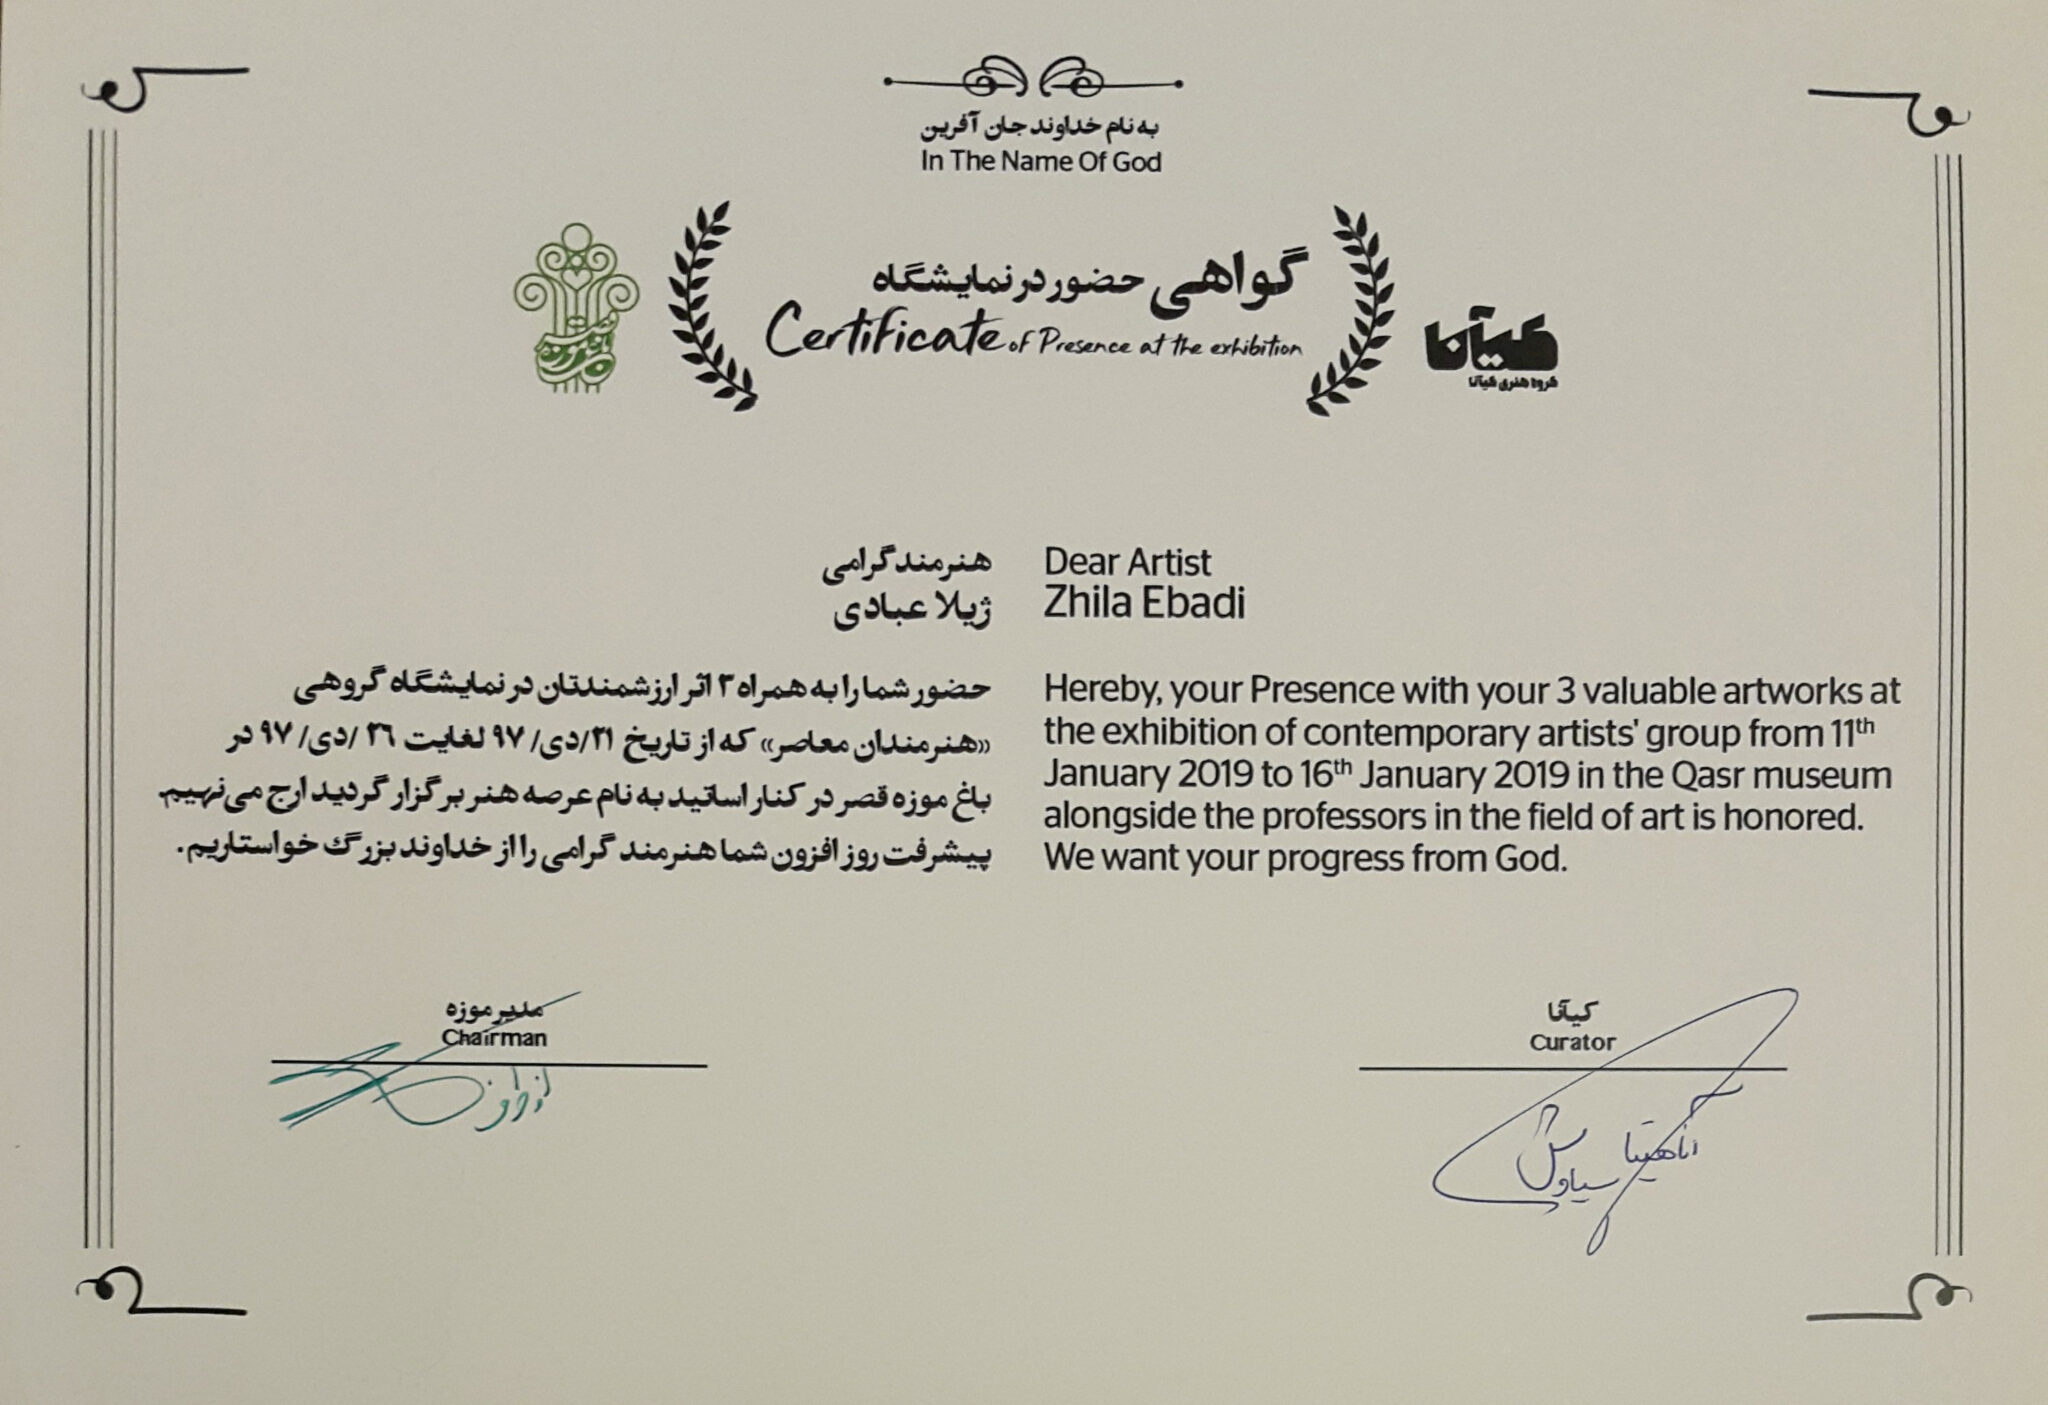 به نام خداوند جان آفرین
In The Name Of God
گواهی حضور در نمایشگاه
Certificate of Presence at the exhibition
باغ موزه قصر
کیآنا
گروه هنری کیآنا
هنرمند گرامی
ژیلا عبادی
حضور شما را به همراه ۳ اثر ارزشمندتان در نمایشگاه گروهی
«هنرمندان معاصر» که از تاریخ ۲۱/دی/ ۹۷ لغایت ۲۶ /دی/ ۹۷ در
باغ موزه قصر در کنار اساتید به نام عرصه هنر برگزار گردید ارج می‌نهیم.
پیشرفت روز افزون شما هنرمند گرامی را از خداوند بزرگ خواستاریم.
Dear Artist
Zhila Ebadi
Hereby, your Presence with your 3 valuable artworks at
the exhibition of contemporary artists' group from 11th
January 2019 to 16th January 2019 in the Qasr museum
alongside the professors in the field of art is honored.
We want your progress from God.
مدیر موزه
Chairman
کیآنا
Curator
آناهیتا
سیاوش